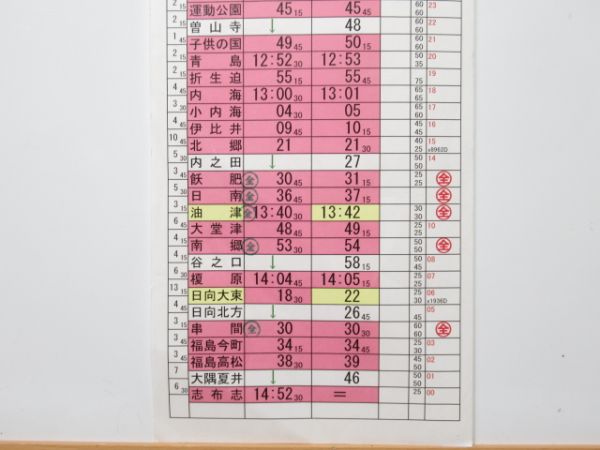 2 15 運動公園 45 15 45 45 60 60 23
曽山寺 ↓ 48 60 60 22
1 45 子供の国 49 45 50 15 60 60 21
2 30 青島 12:52 30 12:53 50 35 20
2 15 折生迫 55 15 55 45 75 19
4 45 内海 13:00 30 13:01 65 65 18
3 30 小内海 04 30 05 65 60 17
4 45 伊比井 09 45 10 15 45 45 16
10 45 北郷 21 21 30 40 25 15 x8962D
5 30 内之田 ↓ 27 50 50 14
3 30 飫肥 全 30 45 31 15 25 25 全
5 30 日南 全 36 45 37 15 全
3 15 油津 全 13:40 30 13:42 30 30 全
6 15 大堂津 48 45 49 15 25 25 10
4 15 南郷 全 53 30 54 50 50 全
4 15 谷之口 ↓ 58 15 50 50 08
6 30 榎原 14:04 45 14:05 15 25 25 07
13 15 日向大東 18 30 22 25 30 06 x1936D
4 45 日向北方 ↓ 26 45 45 05
3 45 串間 全 30 30 30 60 60 全
3 45 福島今町 34 15 34 45 25 25 03
4 15 福島高松 38 30 39 45 50 02
7 大隅夏井 ↓ 46 50 50 01
6 30 志布志 14:52 30 = 25 00